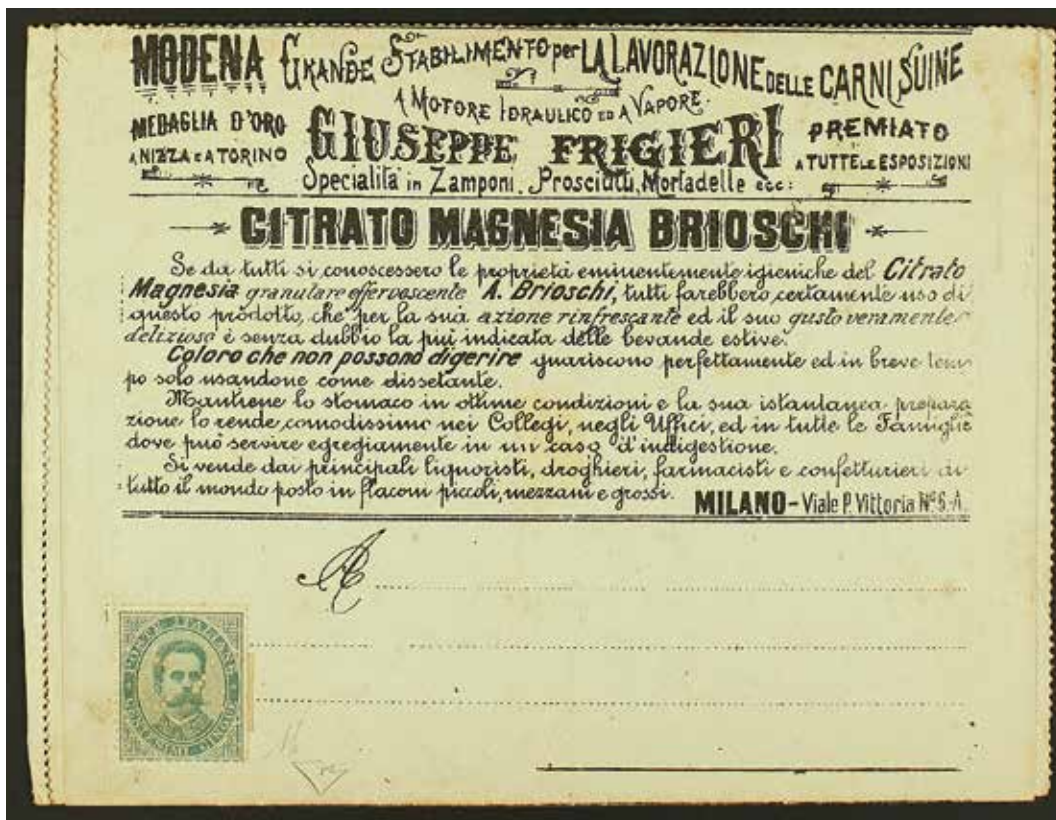 MODENA GRANDE STABILIMENTO per LA LAVORAZIONE DELLE CARNI SUINE
A MOTORE IDRAULICO ED A VAPORE.
MEDAGLIA D'ORO GIUSEPPE FRIGIERI PREMIATO
A NIZZA E A TORINO A TUTTE LE ESPOSIZIONI
Specialità in Zamponi, Prosciutti, Mortadelle ecc:
CITRATO MAGNESIA BRIOSCHI
Se da tutti si conoscessero le proprietà eminentemente igieniche del Citrato
Magnesia granulare effervescente A. Brioschi, tutti farebbero certamente uso di
questo prodotto, che per la sua azione rinfrescante ed il suo gusto veramente
delizioso è senza dubbio la più indicata delle bevande estive.
Coloro che non possono digerire guariscono perfettamente ed in breve tem
po solo usandone come dissetante.
Mantiene lo stomaco in ottime condizioni e la sua istantanea prepara
zione lo rende comodissimo nei Collegi, negli Uffici, ed in tutte le Famiglie
dove può servire egregiamente in un caso d'indigestione.
Si vende dai principali liquoristi, droghieri, farmacisti e confetturieri di
tutto il mondo posto in flaconi piccoli, mezzani e grossi. MILANO - Viale P. Vittoria Nº 6-A.
A